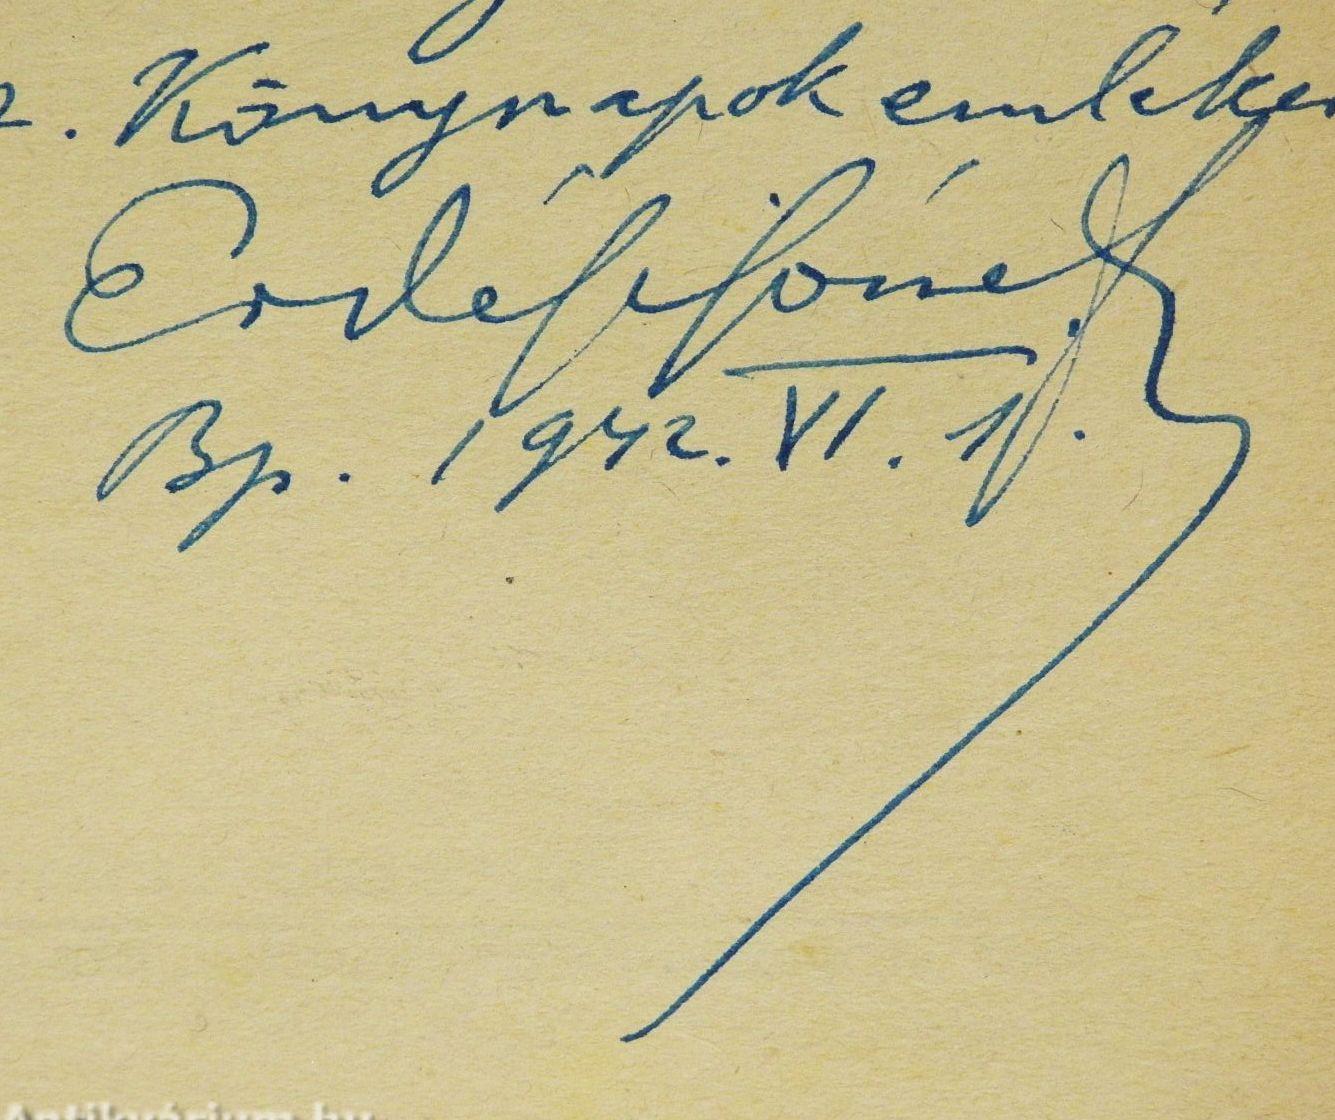 2. Könynapok emlékez
Erdélyi József
Bp. 1942. VI. 1.
Antikvárium.hu